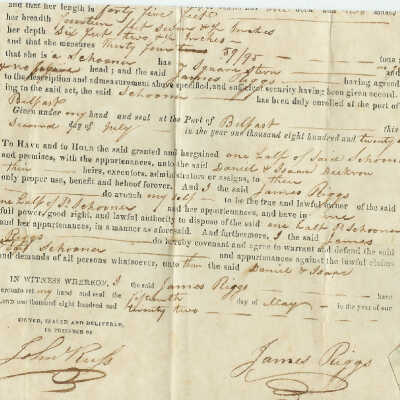 and that her length is forty five feet
her breadth fourteen feet seven inches
her depth Six feet two inches
and that she measures thirty four 39/95 tons
that she is a Schooner Square Stern
& no figure head; and the said James Riggs having agreed
to the description and admeasurement above specified, and sufficient security having been given accord-
ing to the said act, the said Schooner has been duly enrolled at the port of
Belfast
Given under my hand and seal at the Port of Belfast this
Second day of July in the year one thousand eight hundred and twenty
To HAVE and to HOLD the said granted and bargained one half of said Schooner
and premises, with the appurtenances, unto the said Daniel & Isaac
their heirs, executors, administrators or assigns, to their
only proper use, benefit and behoof forever. And I the said James Riggs
do avouch my self to be the true and lawful owner of the said
One half of sd Schooner and her appurtenances, and have in me
full power, good right, and lawful authority to dispose of the said one half sd Schooner
and her appurtenances, in a manner as aforesaid. And furthermore, I the said James
Riggs do hereby covenant and agree to warrant and defend the said
Schooner and appurtenances against the lawful claims
and demands of all persons whatsoever, unto them the said Daniel & Isaac
IN WITNESS WHEREOF, I the said James Riggs have
hereunto set my hand and seal the fifteenth day of May in the year of our
LORD one thousand eight hundred and twenty two
SIGNED, SEALED AND DELIVERED,
IN PRESENCE OF
John
James Riggs